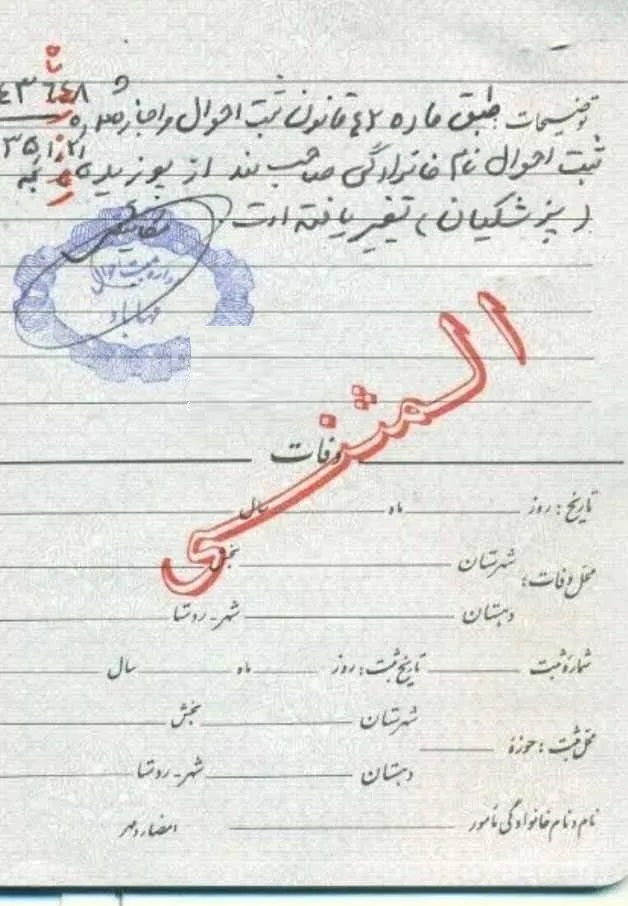 توضیحات طبق ماده ۴۲ قانون ثبت احوال و اجازه ۴۳۶۴۸
ثبت احوال نام خانوادگی صاحب سند از به
(پزشکیان) تغییر یافته است.
مهاباد
المثنی
وفات
تاریخ: روز ماه سال
محل وفات: شهرستان بخش
دهستان شهر-روستا
شماره ثبت تاریخ ثبت: روز ماه سال
محل ثبت: حوزه شهرستان بخش
دهستان شهر-روستا
نام و نام خانوادگی مأمور امضاء و مهر